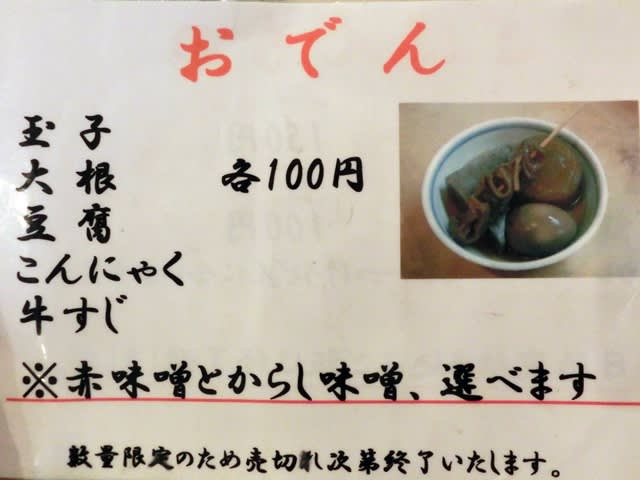 おでん
玉子
大根 各100円
豆腐
こんにゃく
牛すじ
※赤味噌とからし味噌、選べます
数量限定のため売切れ次第終了いたします。